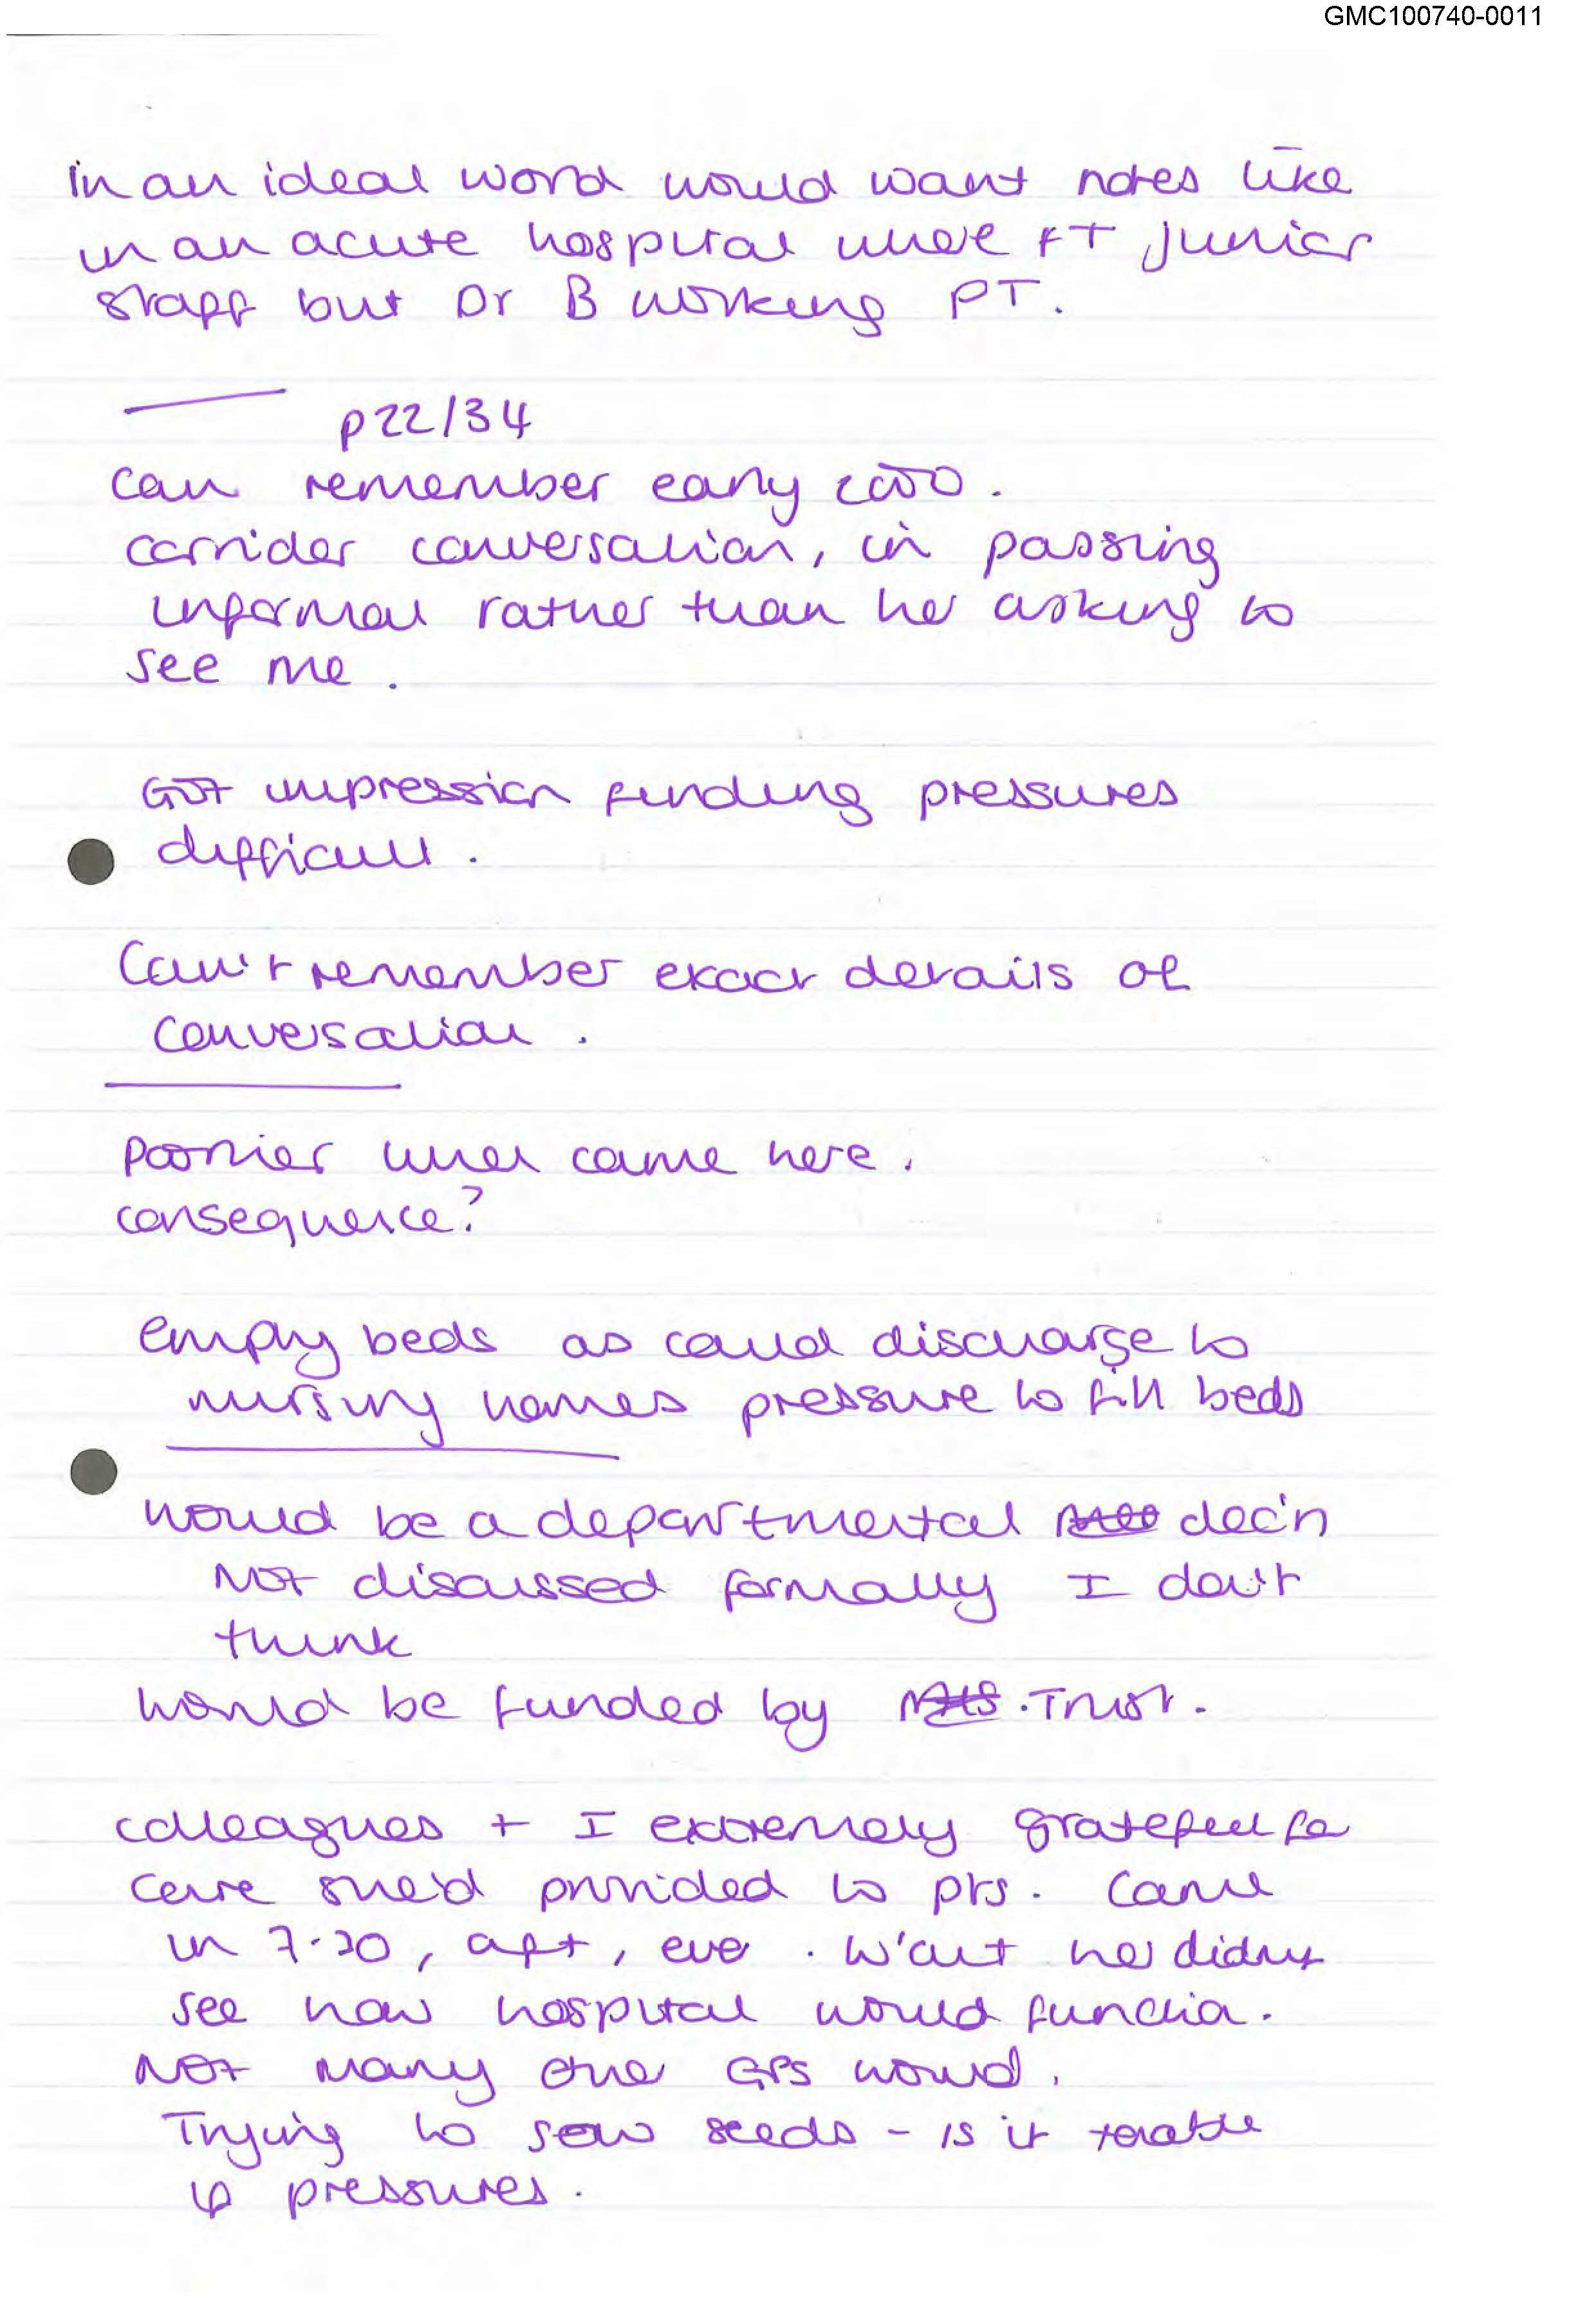 GMC100740-0011
in an ideal word would want notes like
in an acute hospital where FT junior
staff but Dr B working PT.
p22/34
can remember early 2000.
corridor conversation, in passing
informal rather than her asking to
see me.
Got impression finding pressures
difficult.
Can't remember exact details of
conversation.
Poorlier when came here.
consequence?
empty beds as could discharge to
nursing homes pressure to fill beds
would be a departmental dec'n
Not discussed formally I don't
think
would be funded by NHS. Trust.
colleagues + I extremely grateful for
care she'd provided to pts. Came
in 7.30, aft, eve. W'out her didn't
see how hospital would function.
Not many other GPs would.
Trying to sow seeds - is it
pressures.